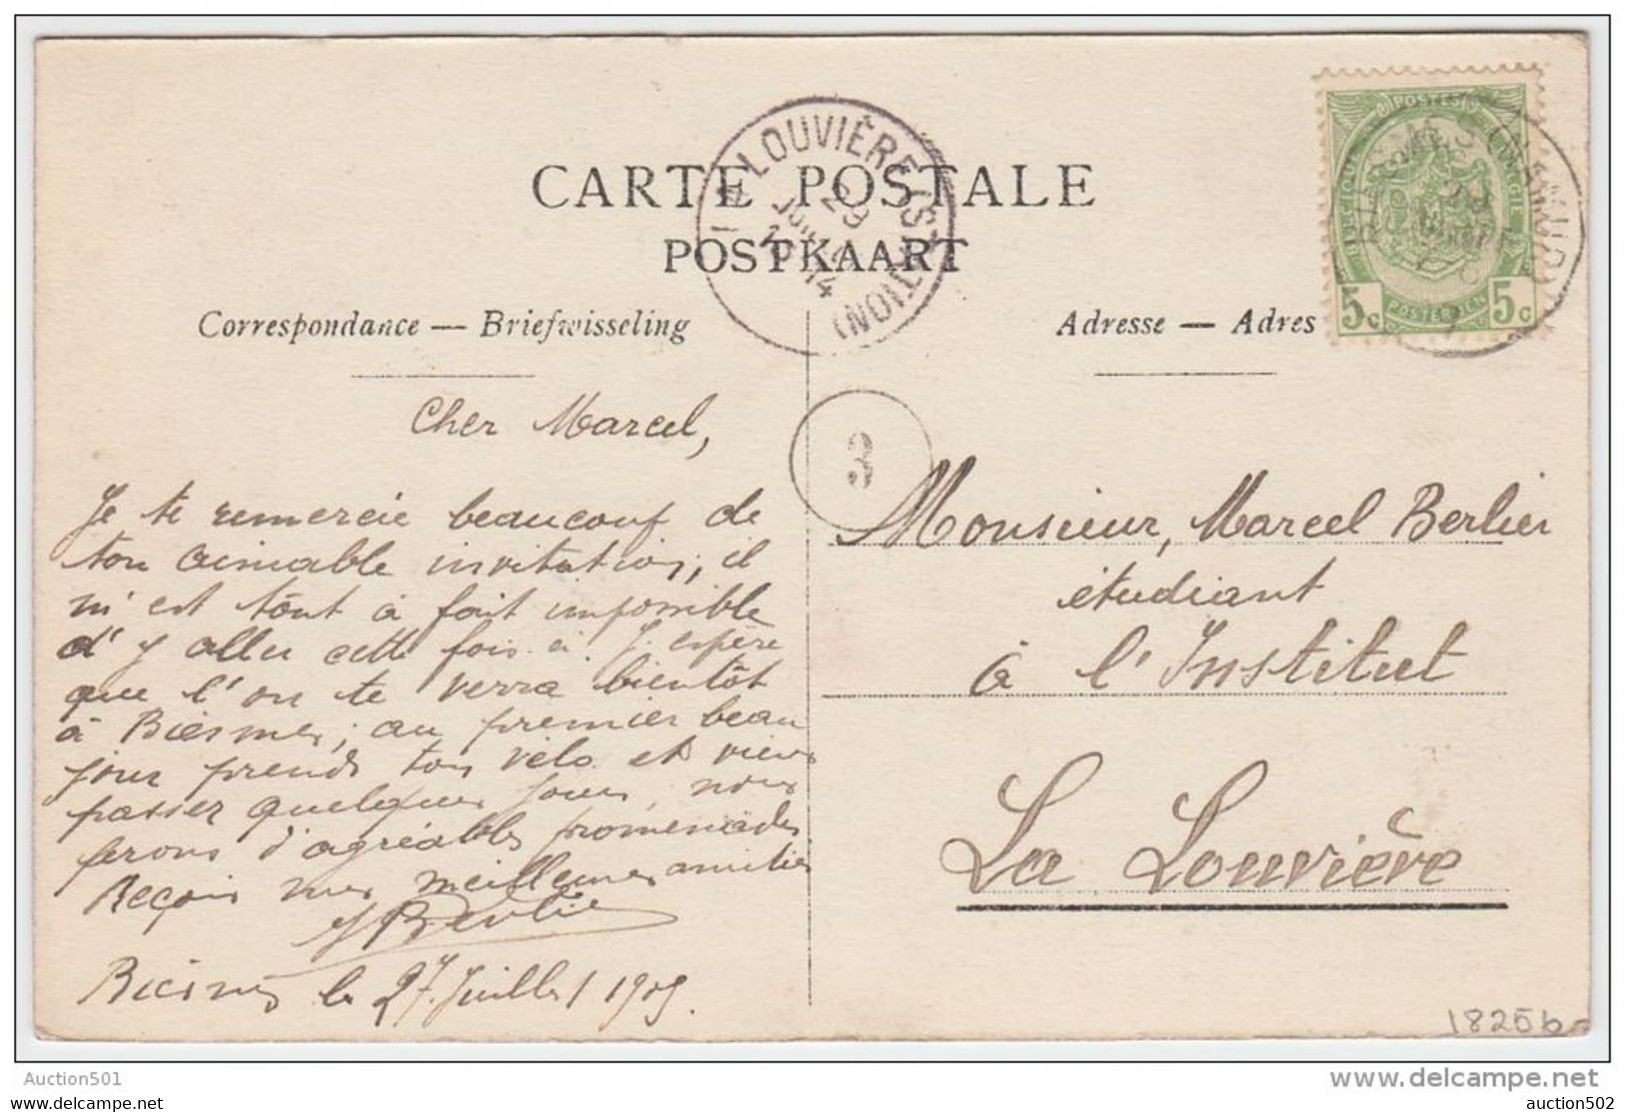 CARTE POSTALE
POSTKAART
Correspondance — Briefwisseling
Adresse — Adres
LA LOUVIÈRE (STATION)
29
14
BELGIQUE
POSTES
5c
POSTERIJEN
5c
3
Cher Marcel,
Je te remercie beaucoup de
ton aimable invitation; il
m'est tout à fait impossible
d'y aller cette fois-ci. J'espère
que l'on te verra bientôt
à Biesmes; au premier beau
jour prends ton vélo et viens
passer quelques jours, nous
ferons d'agréables promenades
Reçois mes meilleures amitiés
J Berlier
Biesmes le 27 Juillet 1909.
Monsieur, Marcel Berlier
étudiant
à l'Institut
La Louvière
1825b
Auction501
auction502
www.delcampe.net
Auction501
auction502